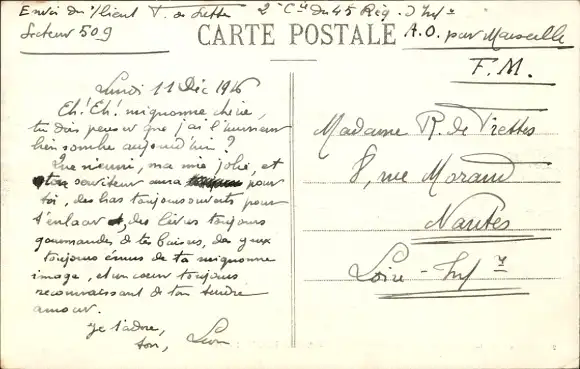 Envoi du Lieut T. de Lette 2e Cie du 45 Rég. d'Infie
Secteur 509
CARTE POSTALE
A.O. par Marseille
F. M.
Lundi 11 Déc 1916
Eh! Eh! mignonne chérie,
tu dois penser que j'ai l'humeur
bien sombre aujourd'hui ?
Que nenni, ma mie jolie, et
ton serviteur aura pour
toi, des bras toujours ouverts pour
t'enlacer, des lèvres toujours
gourmandes de tes baisers, des yeux
toujours émus de ta mignonne
image, et un cœur toujours
reconnaissant de ton tendre
amour.
Je t'adore,
ton, Léon
Madame R. de Trettes
8, rue Morand
Nantes
Loire-Infre